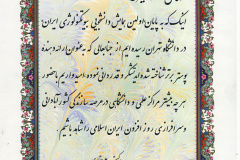 اینک که به پایان اولین همایش دانشجویی بیوتکنولوژی ایران
در دانشگاه تهران رسیده ایم از جنابعالی که به عنوان ارائه دهنده
پوستر برتر شناخته شده اید تشکر و قدردانی نموده امیدواریم با حضور
هر چه بیشتر مراکز علمی و دانشگاهی در عرصه سازندگی کشور آبادانی
و سرافرازی روز افزون ایران اسلامی را شاهد باشیم